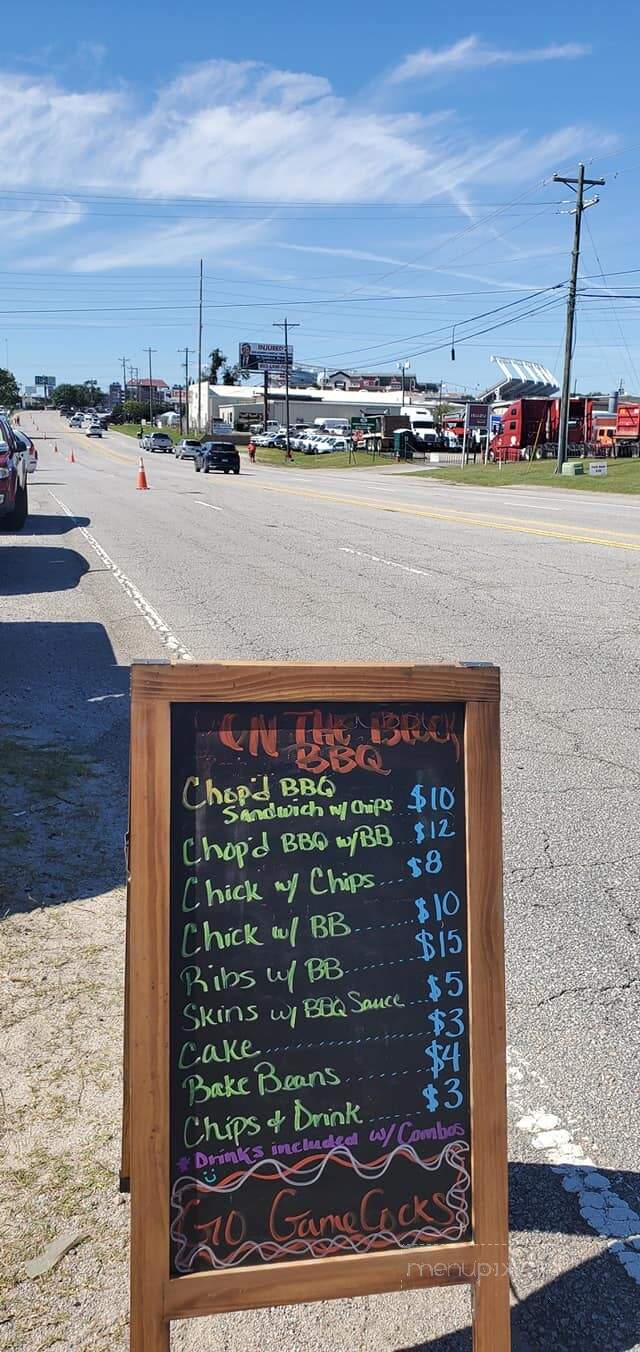 INJURED?
ISUZU
ON THE BLOCK
BBQ
Chop'd BBQ
Sandwich w/ Chips $10
Chop'd BBQ w/BB $12
Chick w/ Chips... $8
Chick w/ BB....... $10
Ribs w/ BB....... $15
Skins w/ BBQ Sauce... $5
Cake............... $3
Bake Beans....... $4
Chips & Drink...... $3
*Drinks included w/ Combos
GO GameCocks
menupix